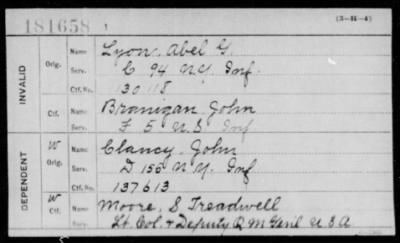 181658
(3-H-4)
INVALID
Orig. Name Lyon, Abel G.
Serv. C 94 N.Y. Inf.
Ctf. No. 130118
Ctf. Name Branigan, John
Serv. F 5 U S Inf
DEPENDENT
W Orig. Name Clancy, John
Serv. D 155 N.Y. Inf
Ctf. No. 137613
W Ctf. Name Moore, S Treadwell
Serv. Lt. Col. + Deputy Q M Genl U S A